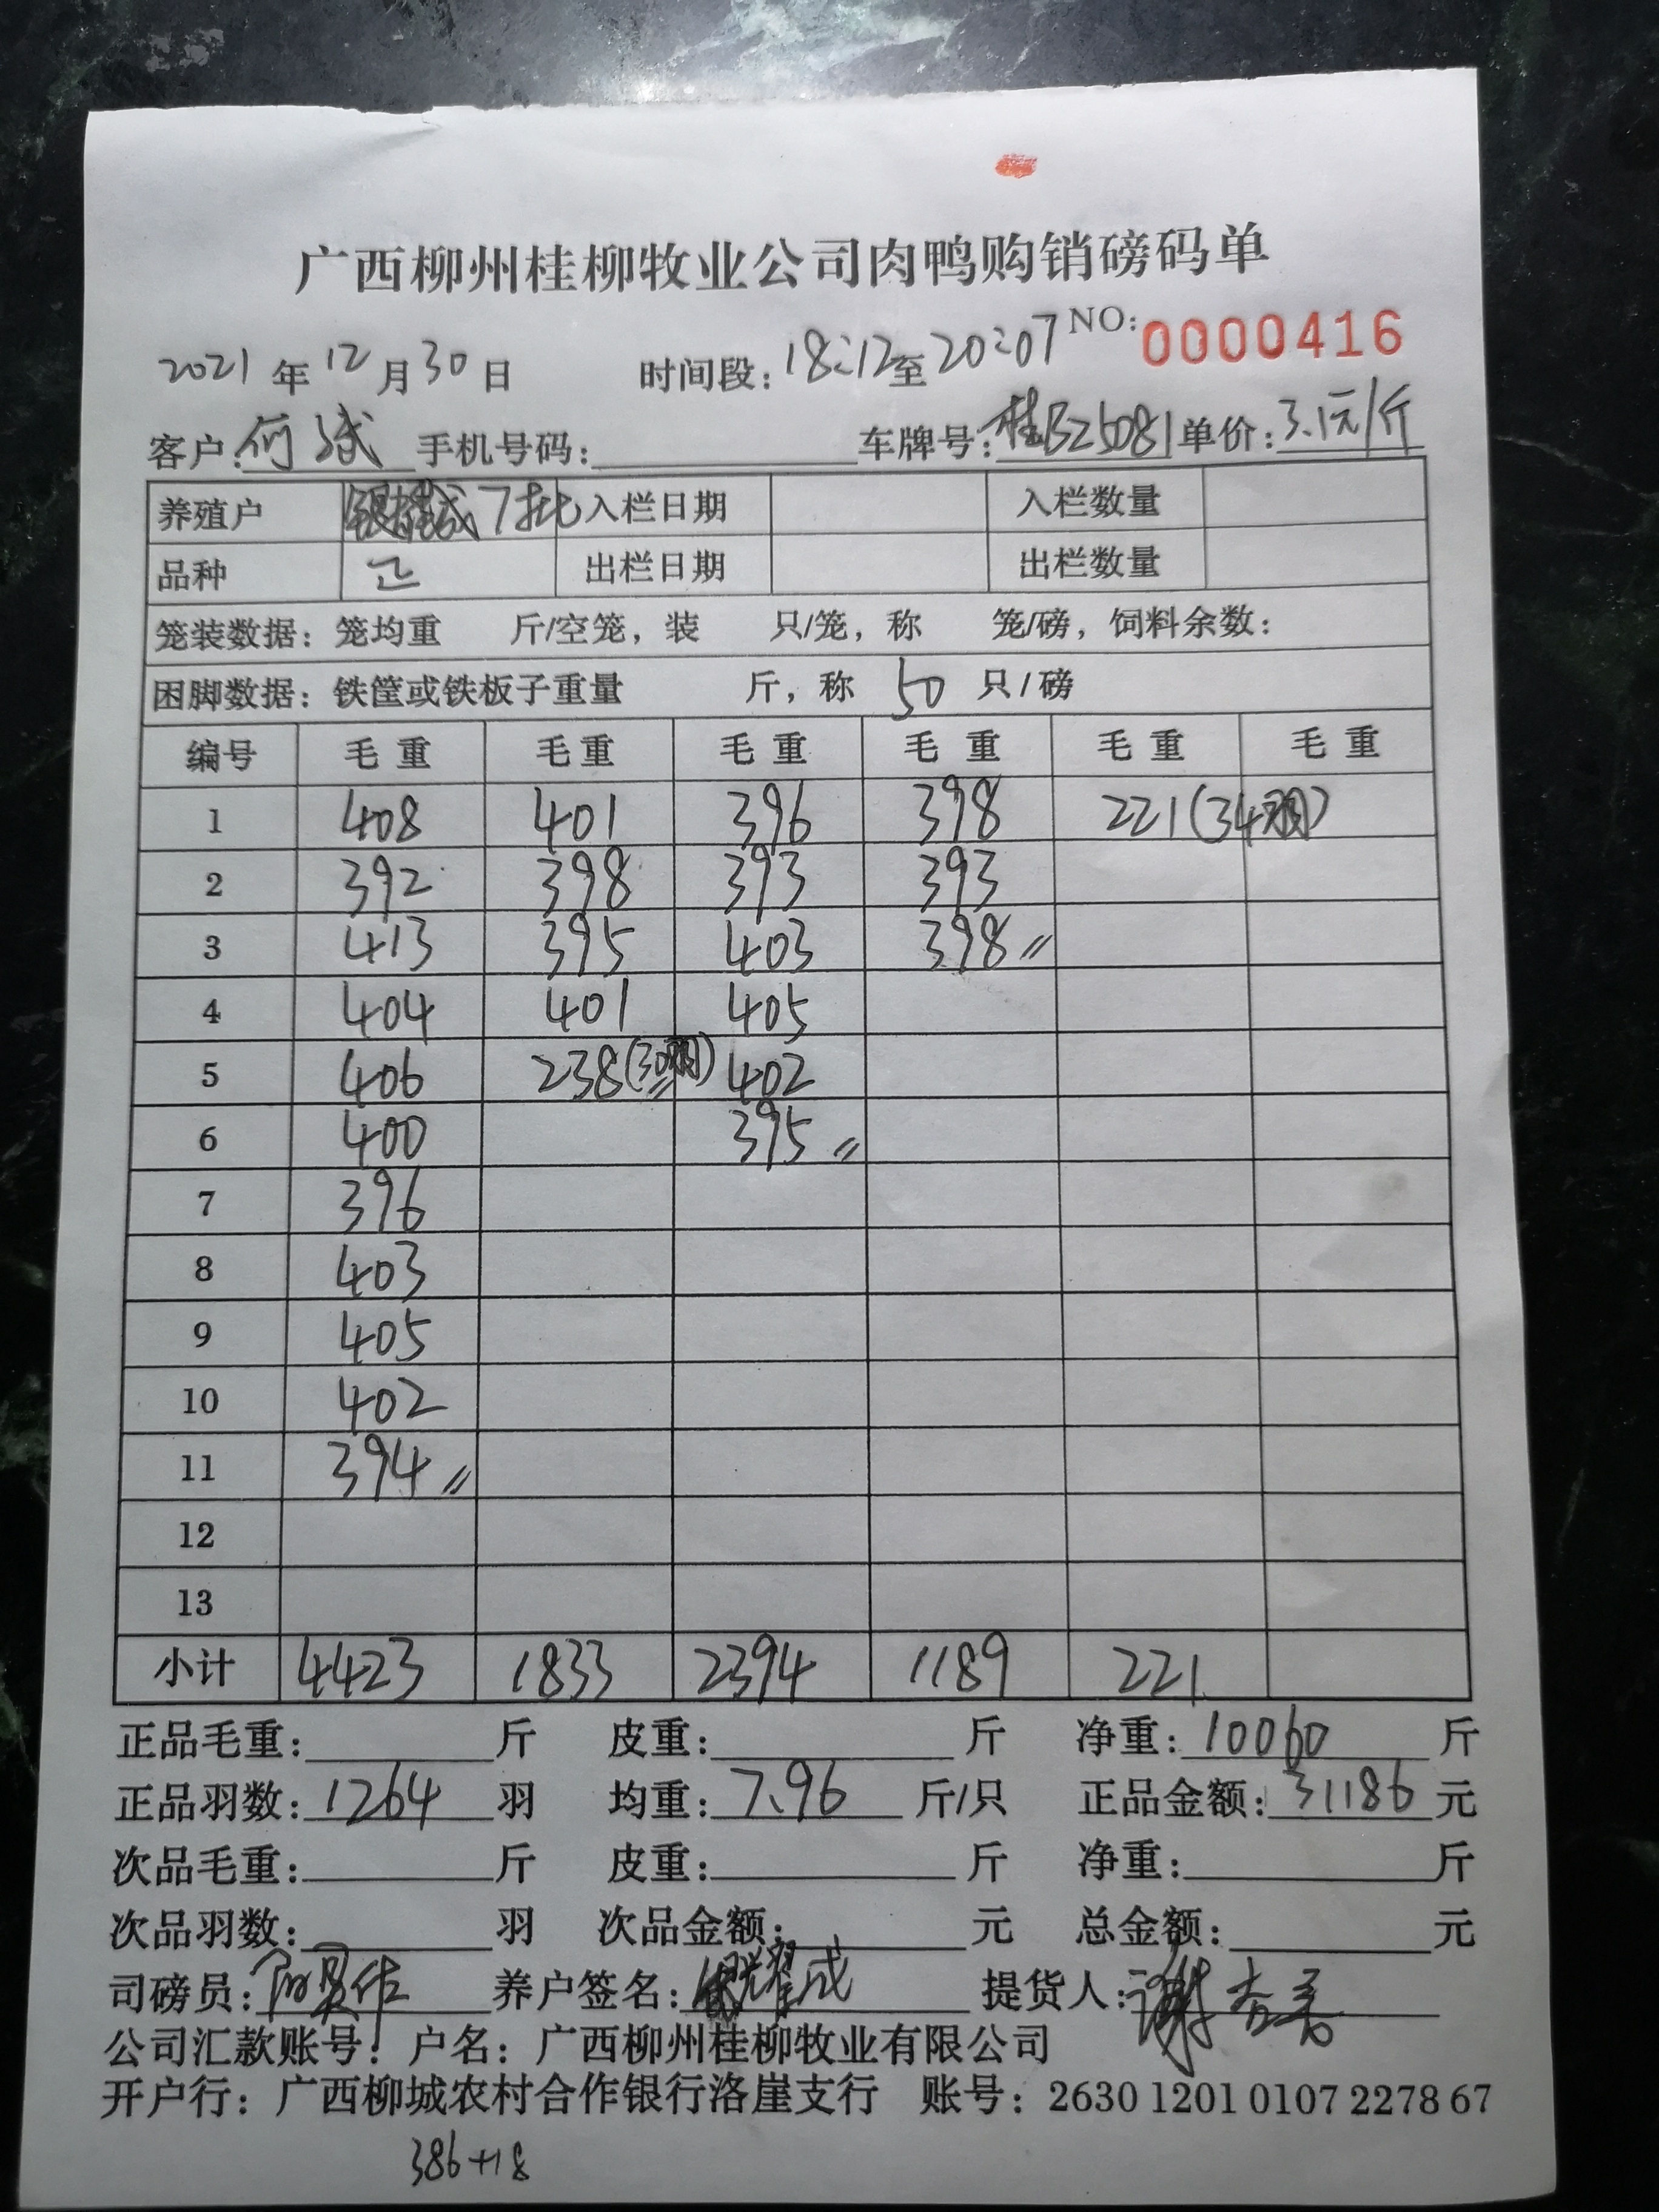 广西柳州桂柳牧业公司肉鸭购销磅码单
NO:0000416
2021年12月30日 时间段:18:12至20:07
客户:何斌 手机号码: 车牌号:桂BZ5081 单价:3.1元/斤
养殖户 成7批 入栏日期 入栏数量
品种 正 出栏日期 出栏数量
笼装数据：笼均重 斤/空笼，装 只/笼，称 笼/磅，饲料余数：
困脚数据：铁筐或铁板子重量 斤，称 50 只/磅
编号 毛重 毛重 毛重 毛重 毛重 毛重
1 408 401 396 398 221(34羽)
2 392 398 393 393
3 413 395 403 398〃
4 404 401 405
5 406 238(30羽) 402
6 400 395〃
7 396
8 403
9 405
10 402
11 394〃
12
13
小计 4423 1833 2394 1189 221
正品毛重: 斤 皮重: 斤 净重:10060 斤
正品羽数:1264 羽 均重:7.96 斤/只 正品金额:31186 元
次品毛重: 斤 皮重: 斤 净重: 斤
次品羽数: 羽 次品金额: 元 总金额: 元
司磅员: 养户签名:耀成 提货人:谢
公司汇款账号：户名：广西柳州桂柳牧业有限公司
开户行：广西柳城农村合作银行洛崖支行 账号：2630 1201 0107 2278 67
386+18